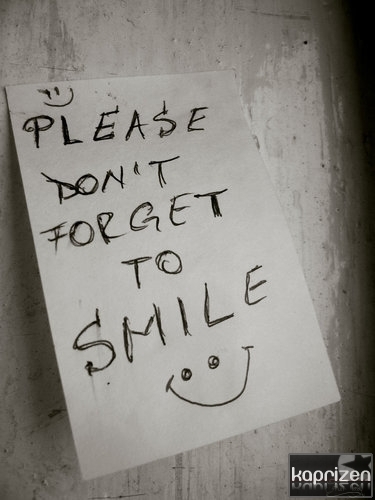 PLEASE
DON'T
FORGET
TO
SMILE
kaprizen